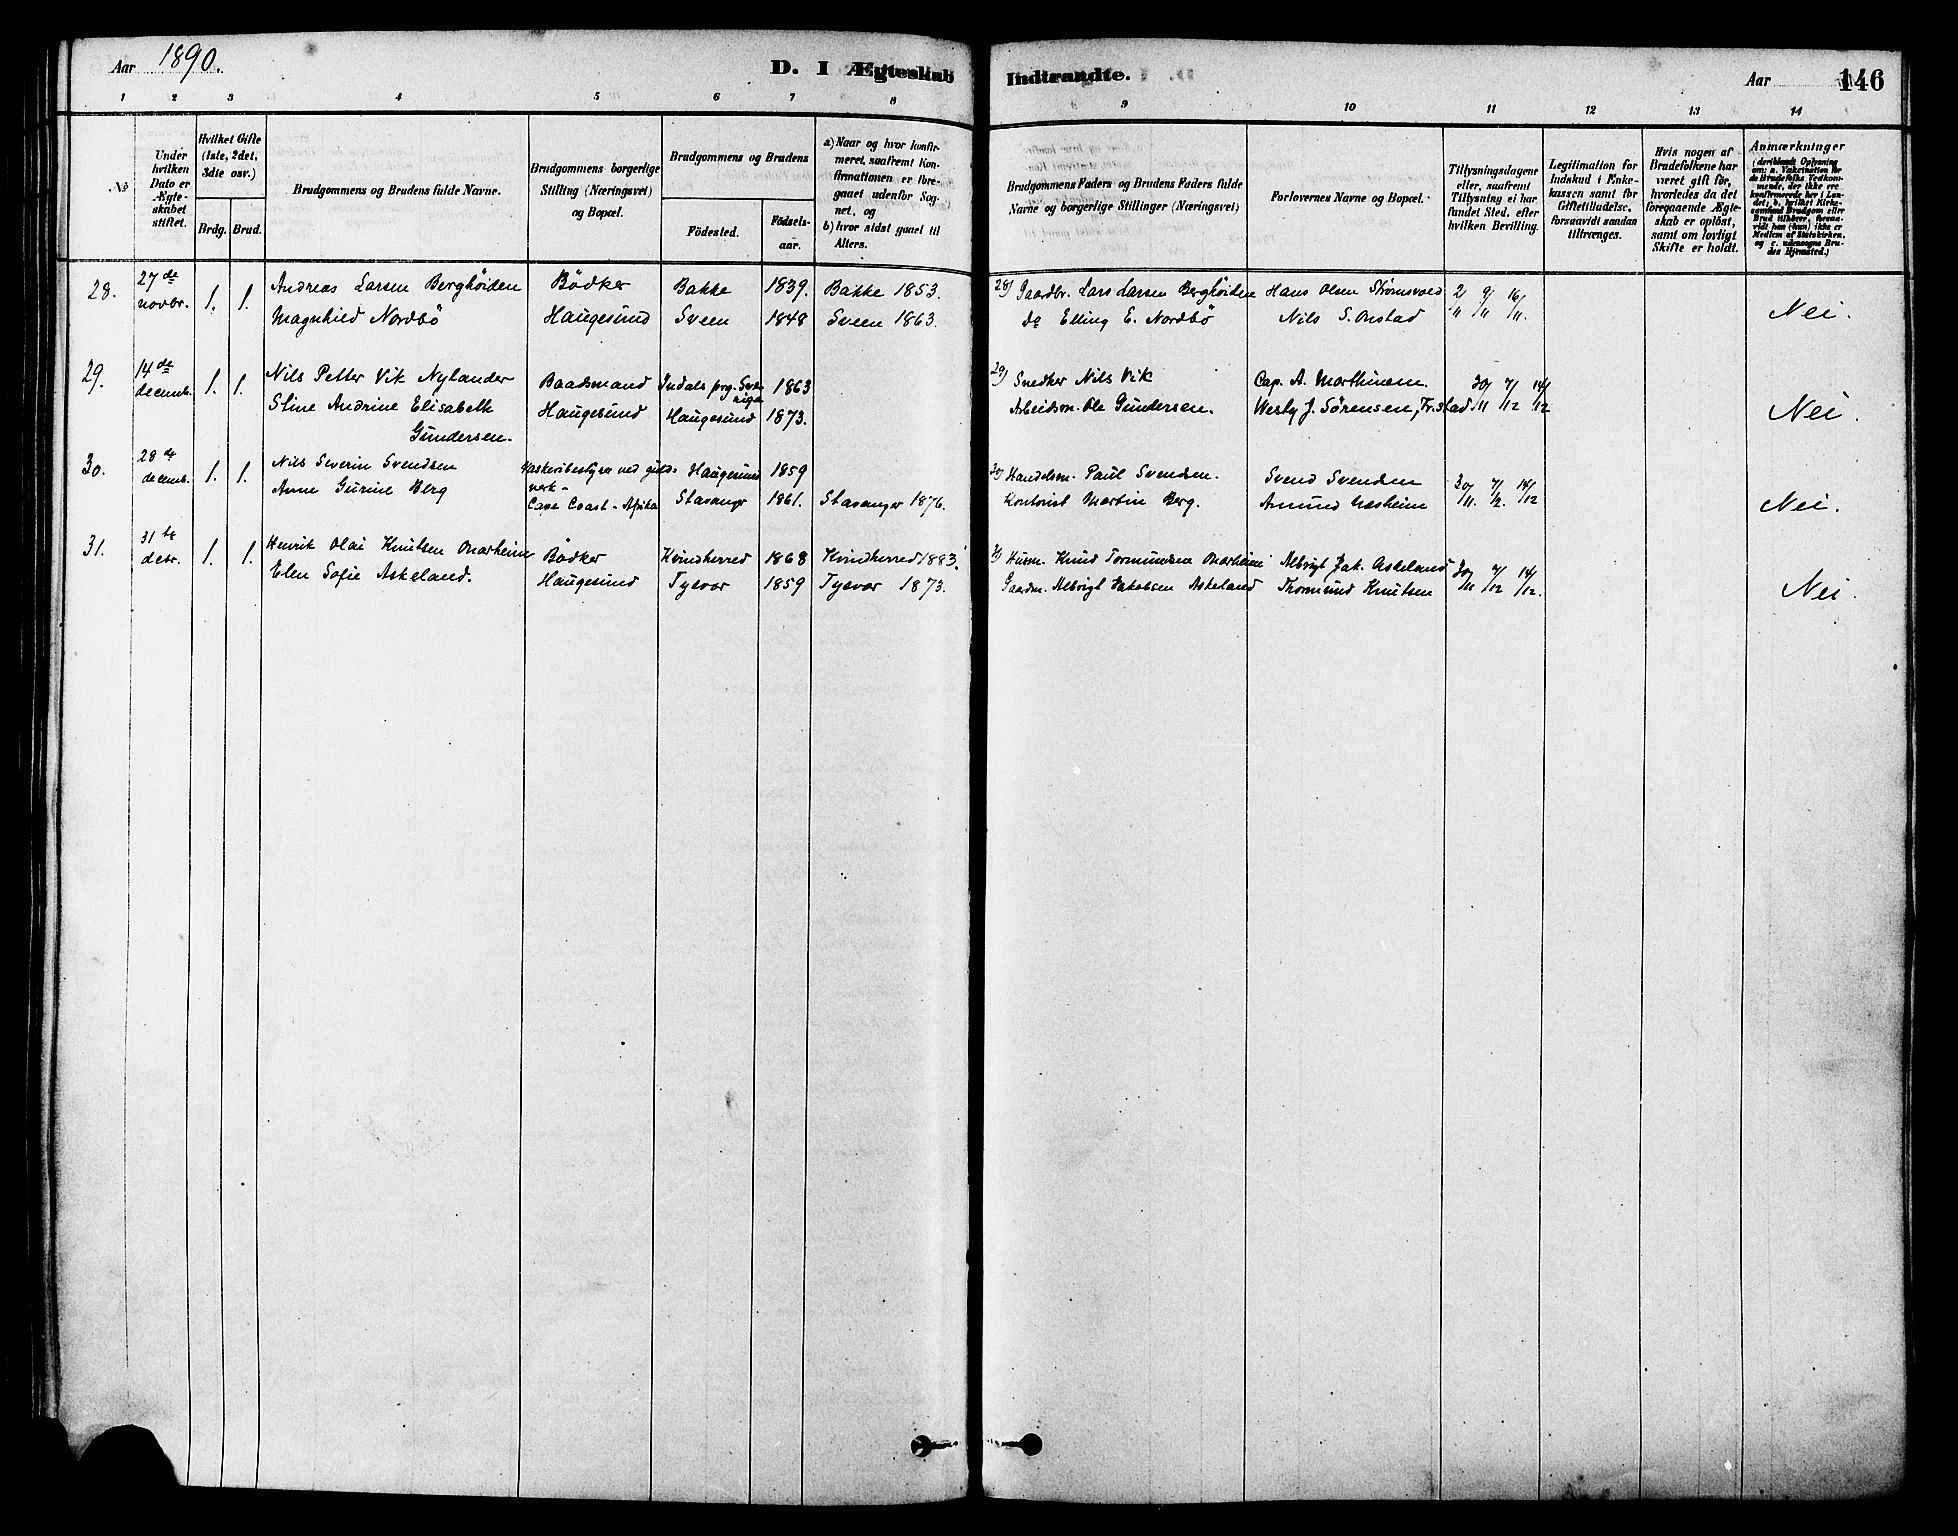 Aar 1890.
D. I Ægteskab Indtrandte.
Aar 146
1 2 3 4 5 6 7 8 9 10 11 12 13 14
No
Under hvilken Dato er Ægteskabet stiftet.
Hvilket Gifte (1ste, 2det, 3die osv.)
Brdg. Brud.
Brudgommens og Brudens fulde Navne.
Brudgommens borgerlige Stilling (Næringsvei) og Bopæl.
Brudgommens og Brudens
Födested.
Födsels-aar.
a) Naar og hvor konfirmeret, saafremt Konfirmationen er foregaaet udenfor Sognet, og
b) hvor sidst gaaet til Alters.
Brudgommens Faders og Brudens Faders fulde Navne og borgerlige Stillinger (Næringsvei)
Forlovernes Navne og Bopæl.
Tillysningsdagene eller, saafremt Tillysning ei har fundet Sted, efter hvilken Bevilling.
Legitimation for Indskud i Enkekassen samt for Giftetilladelse, forsaavidt saadan tiltrænges.
Hvis nogen af Brudefolkene har været gift før, hvorledes da det foregaaende Ægteskab er oplöst, samt om lovligt Skifte er holdt.
Anmærkninger
28. 27de novbr. 1. 1. Andreas Larsen Berghöiden Bödker Bakke 1839. Bakke 1853. 28) Gaardbr. Lars Larsen Berghöiden Hans Olsen Strömsvold 2/11 9/11 16/11.
Magnhild Nordbö Haugesund Sveen 1848 Sveen 1863. do Elling E. Nordbö Nils S. Onstad Nei.
29. 14de decemb. 1. 1. Nils Petter Vik Nylander Baadsmand Indals prg. Sverige 1863 29) Snedker Nils Vik Cap. A. Marthinsen. 30/11 7/12 14/12
Stine Andrine Elisabeth Gundersen. Haugesund Haugesund 1873. Arbeidsm. Ole Gundersen. Westy J. Sörensen, Fr.stad Nei.
30. 28de decemb. 1. 1. Nils Severin Svendsen Vaskeribestyrer ved guldverk - Haugesund 1859 30) Handelsm. Paul Svendsen. Svend Svendsen 30/11. 7/12. 14/12
Anne Gurine Berg Cape Coast - Afrika Stavanger 1861. Stavanger 1876. Kontorist Martin Berg. Amund Næsheim Nei.
31. 31te decr. 1. 1. Henrik Olai Knutsen Onarheim Bödker Kvindherred 1868 Kvindherred 1883. 31) Husm. Knud Tormundsen Onarheim Albrigt Jak. Askeland 30/11 7/12 14/12.
Elen Sofie Askeland. Haugesund Tysvær 1859 Tysvær 1873. Gaardm. Albrigt Jakobsen Askeland Thormund Knutsen Nei.